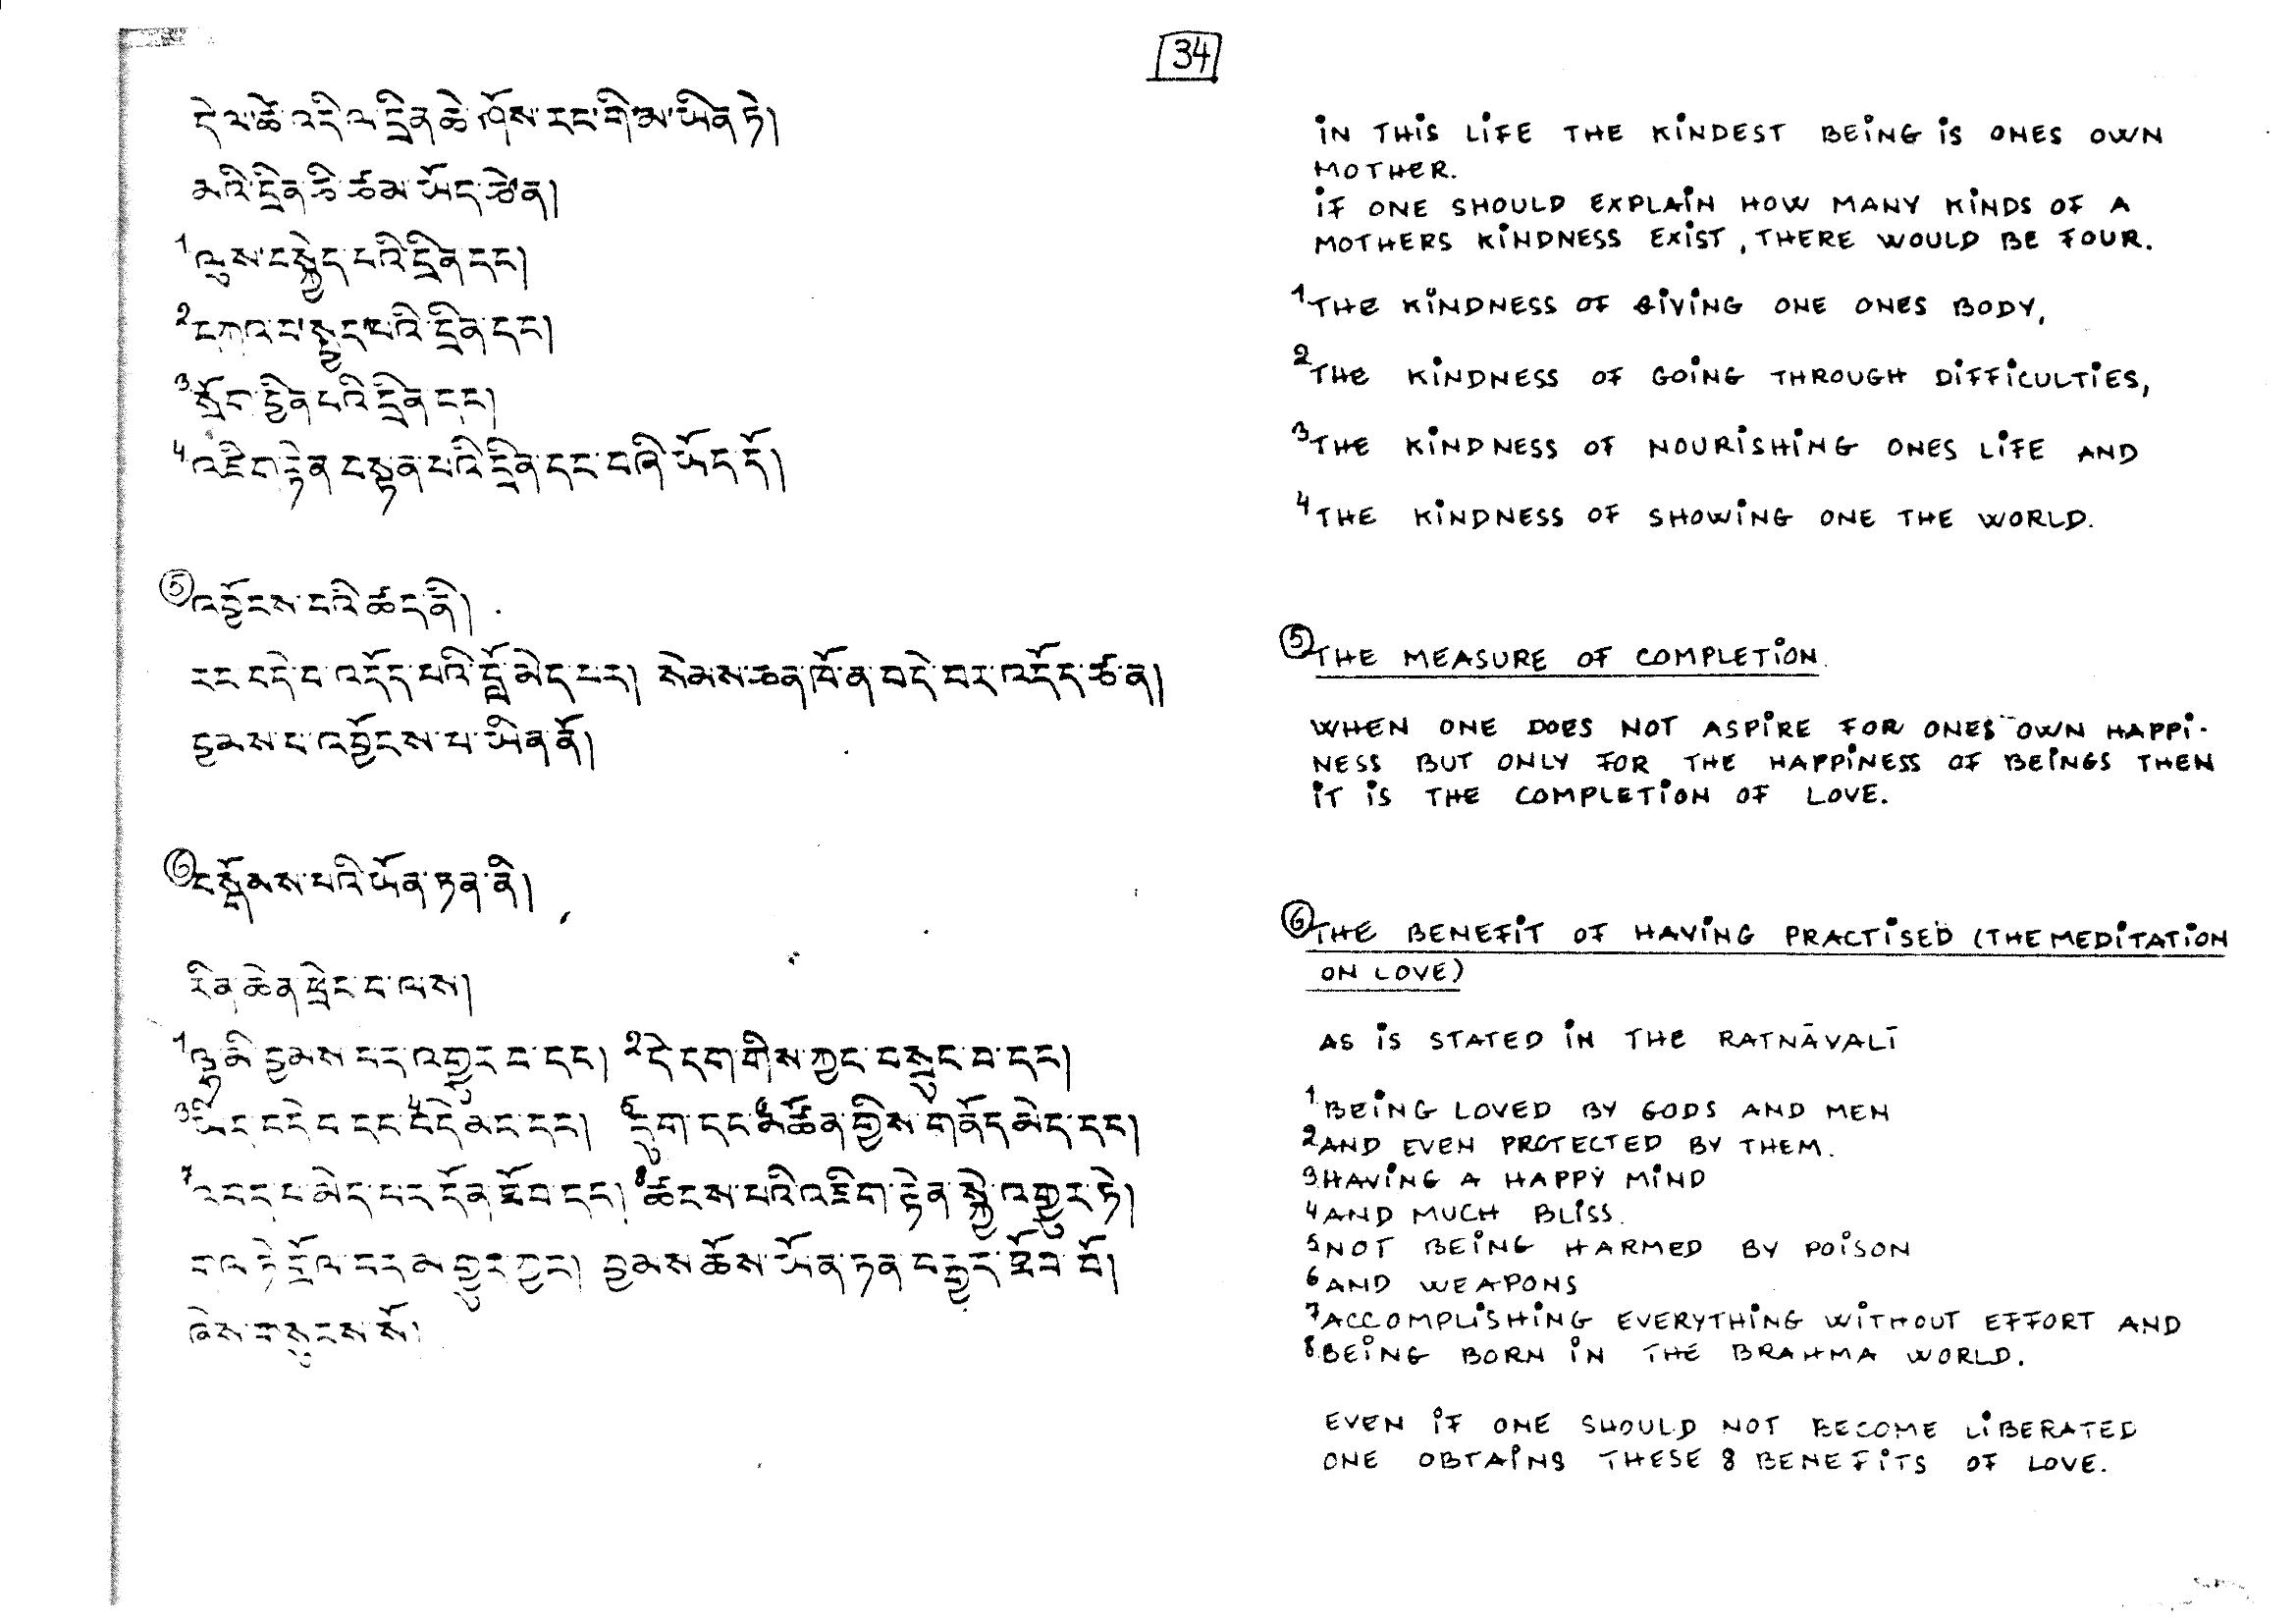 34
དེ་ལ་ཚེ་འདི་ལ་དྲིན་ཆེ་ཤོས་རང་གི་མ་ཡིན་ཏེ།
མའི་དྲིན་ཇི་ཙམ་ཡོད་ཅེ་ན།
1 ལུས་བསྐྱེད་པའི་དྲིན་དང་།
2 དཀའ་བ་སྤྱད་པའི་དྲིན་དང་།
3 སྲོག་སྦྱིན་པའི་དྲིན་དང་།
4 འཇིག་རྟེན་བསྟན་པའི་དྲིན་དང་བཞི་ཡོད་དོ།
5 འབྱོངས་པའི་ཚད་ནི།
རང་བདེ་བ་འདོད་པའི་བློ་མེད་པར། སེམས་ཅན་ཁོ་ན་བདེ་བར་འདོད་ཙ་ན།
བྱམས་པ་འབྱོངས་པ་ཡིན་ནོ།
6 བསྒོམས་པའི་ཡོན་ཏན་ནི།
རིན་ཆེན་ཕྲེང་བ་ལས།
1 ལྷ་མི་བྱམས་པར་འགྱུར་བ་དང་། 2 དེ་དག་གིས་ཀྱང་བསྲུང་བ་དང་།
3 ཡིད་བདེ་བ་དང་ 4 བདེ་མང་དང་། 5 དུག་དང་ 6 མཚོན་གྱིས་གནོད་མེད་དང་།
7 འབད་པ་མེད་པར་དོན་ཐོབ་དང་། 8 ཚངས་པའི་འཇིག་རྟེན་སྐྱེ་འགྱུར་ཏེ།
གལ་ཏེ་གྲོལ་བར་མ་གྱུར་ཀྱང་། བྱམས་ཆོས་ཡོན་ཏན་བརྒྱད་ཐོབ་བོ།
ཞེས་གསུངས་སོ།
IN THIS LIFE THE KINDEST BEING IS ONES OWN
MOTHER.
IF ONE SHOULD EXPLAIN HOW MANY KINDS OF A
MOTHERS KINDNESS EXIST, THERE WOULD BE FOUR.
1 THE KINDNESS OF GIVING ONE ONES BODY,
2 THE KINDNESS OF GOING THROUGH DIFFICULTIES,
3 THE KINDNESS OF NOURISHING ONES LIFE AND
4 THE KINDNESS OF SHOWING ONE THE WORLD.
5 THE MEASURE OF COMPLETION.
WHEN ONE DOES NOT ASPIRE FOR ONES OWN HAPPI-
NESS BUT ONLY FOR THE HAPPINESS OF BEINGS THEN
IT IS THE COMPLETION OF LOVE.
6 THE BENEFIT OF HAVING PRACTISED (THE MEDITATION
ON LOVE)
AS IS STATED IN THE RATNĀVALĪ
1 BEING LOVED BY GODS AND MEN
2 AND EVEN PROTECTED BY THEM.
3 HAVING A HAPPY MIND
4 AND MUCH BLISS.
5 NOT BEING HARMED BY POISON
6 AND WEAPONS
7 ACCOMPLISHING EVERYTHING WITHOUT EFFORT AND
8 BEING BORN IN THE BRAHMA WORLD.
EVEN IF ONE SHOULD NOT BECOME LIBERATED
ONE OBTAINS THESE 8 BENEFITS OF LOVE.